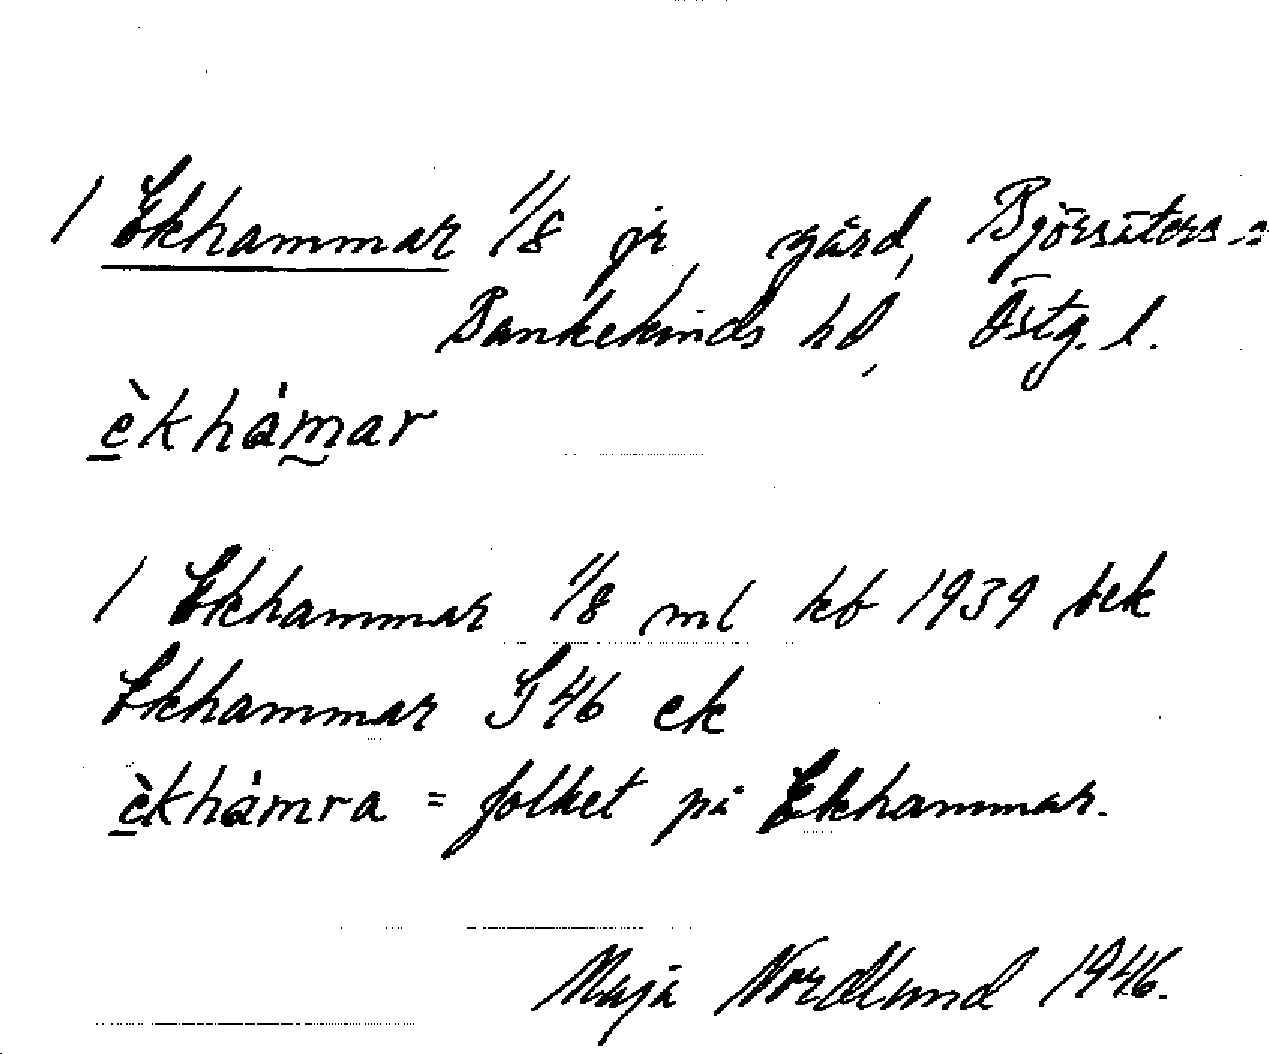 1 Ekhammar 1/8 jr, gård, Björsäters s
Bankekinds hd, Östg. l.
èkhámar
1 Ekhammar 1/8 ml kb 1939 bek
Ekhammar G 46 ek
èkhámra = folket på Ekhammar.
Maja Nordlund 1946.